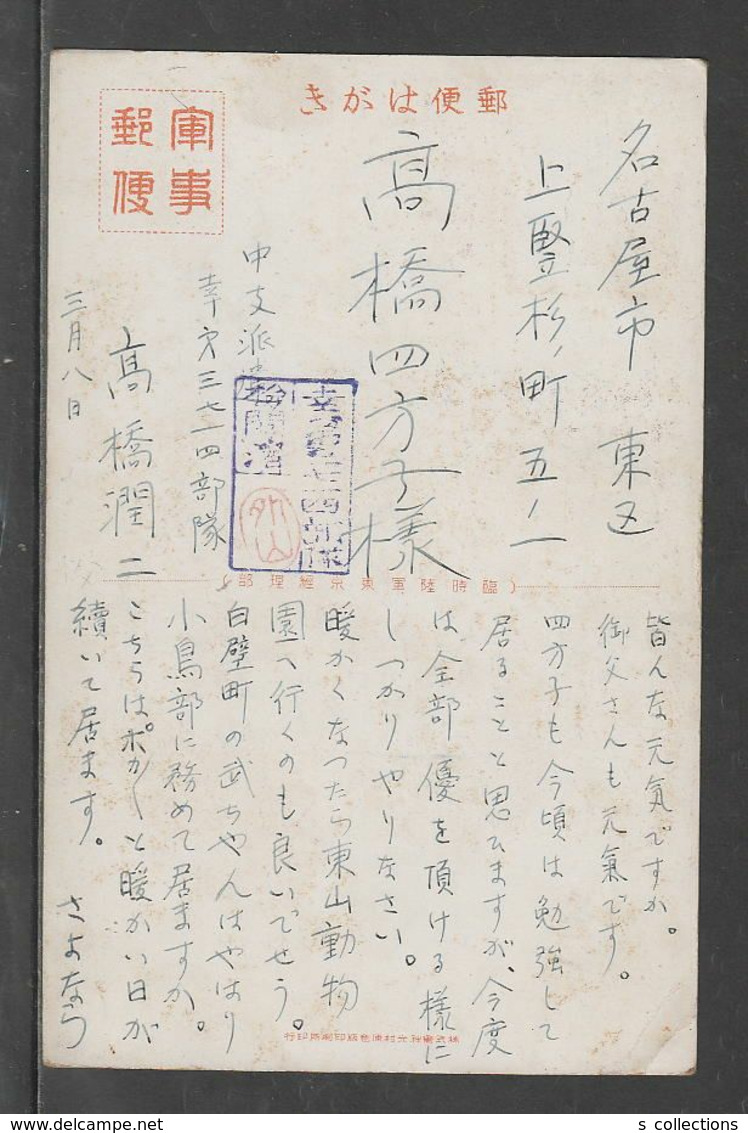 郵便はがき
軍事
郵便
名古屋市 東区
上竪杉ノ町 五ノ一
高橋四方子様
中支派遣
幸第三七四部隊
高橋潤二
三月八日
検閲済
外山
(臨時陸軍東京経理部)
皆んな元気ですか。
御父さんも元氣です。
四方子も今頃は勉強して
居ることと思ひますが、今度
は全部優を頂ける様に
しつかりやりなさい。
暖かくなつたら東山動物
園へ行くのも良いでせう。
白壁町の武ちやんはやはり
小鳥部に務めて居ますか。
こちらはポカ〱と暖かい日が
続いて居ます。 さよなら
s collections